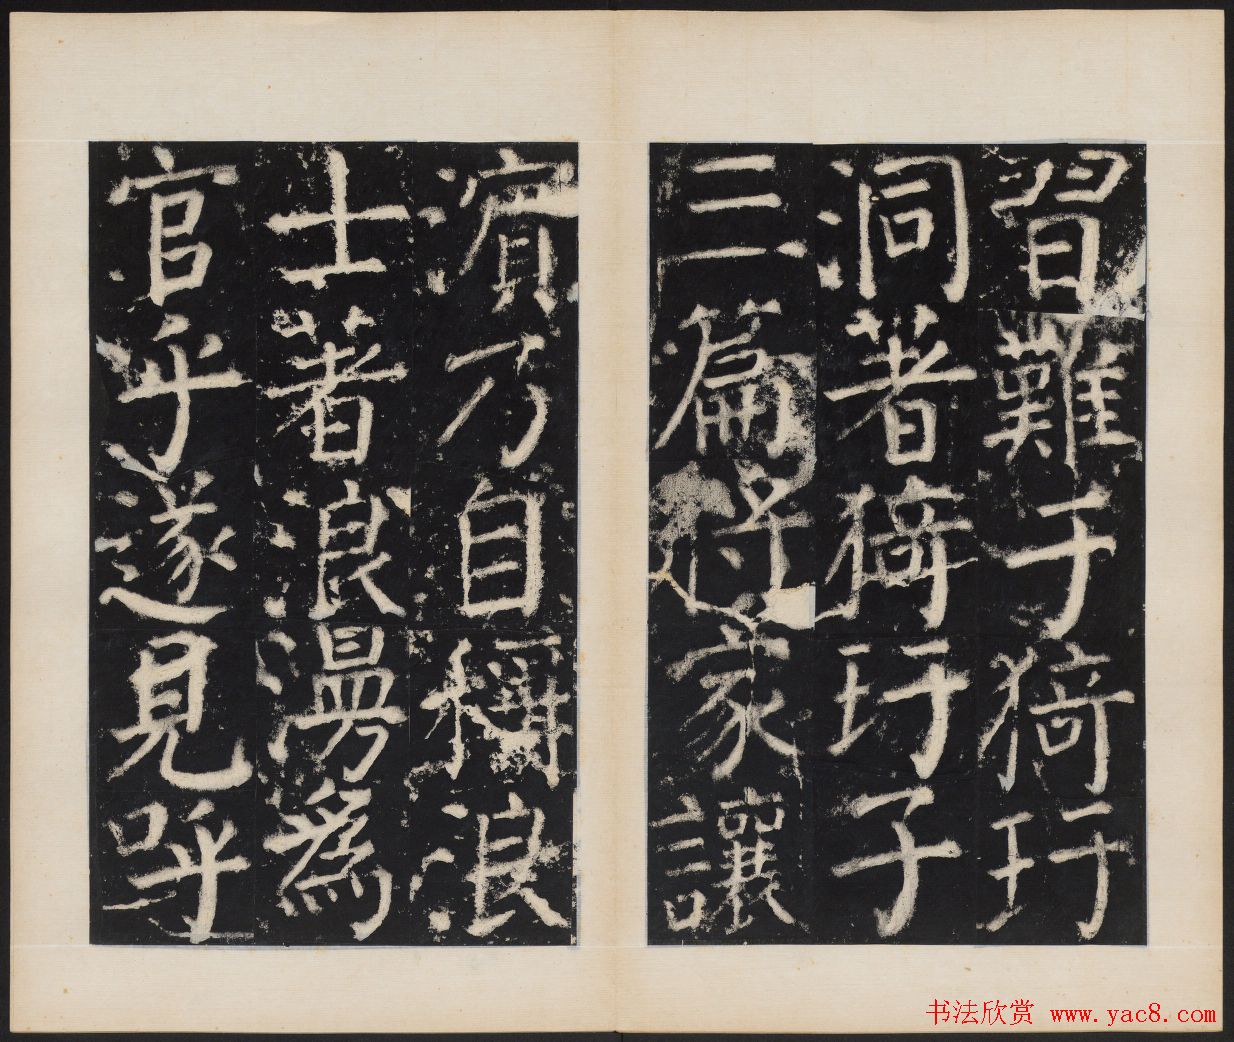 習難于猗玗
洞著猗玗子
三篇將家讓
濱乃自稱浪
士著浪漫爲
官乎遂見呼
书法欣赏 www.yac8.com